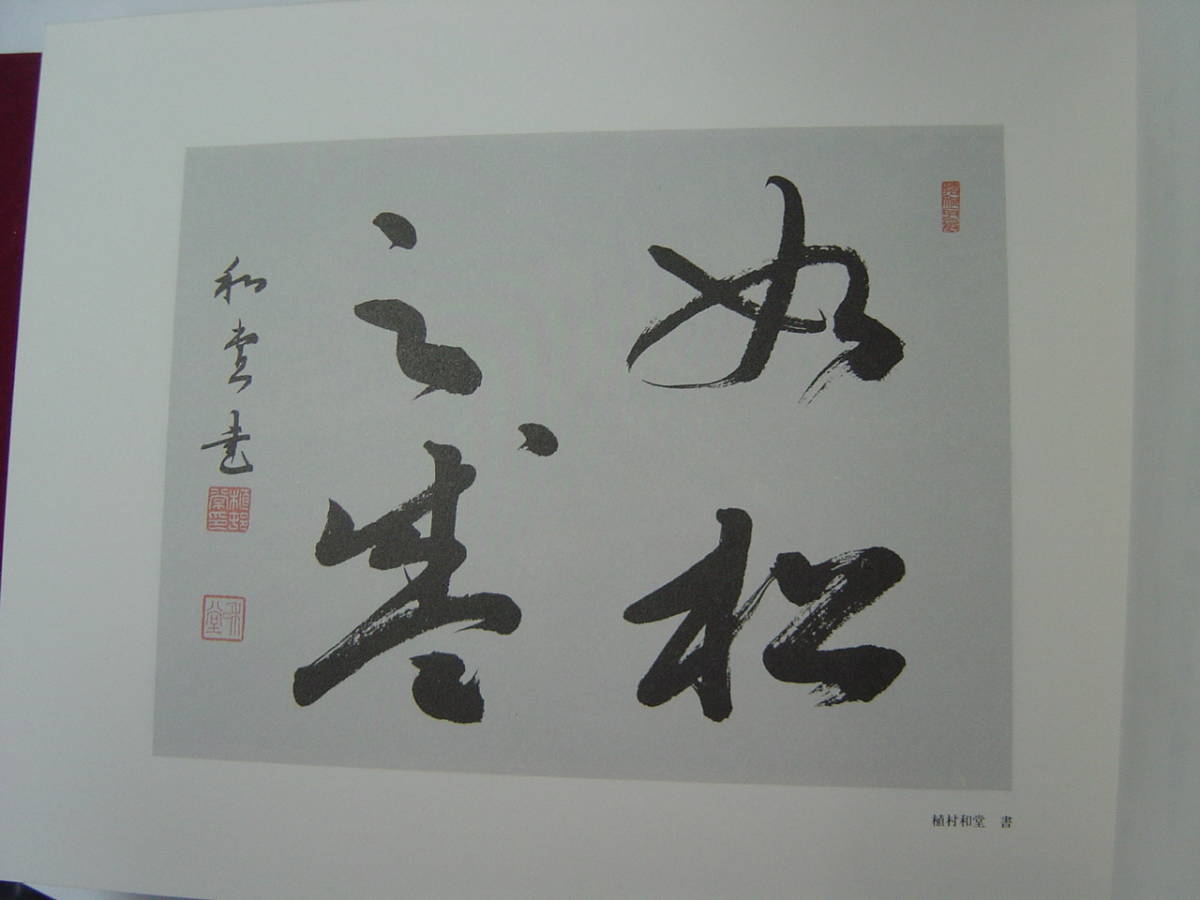 如松
之盛
和堂書
和堂
植村和堂　書